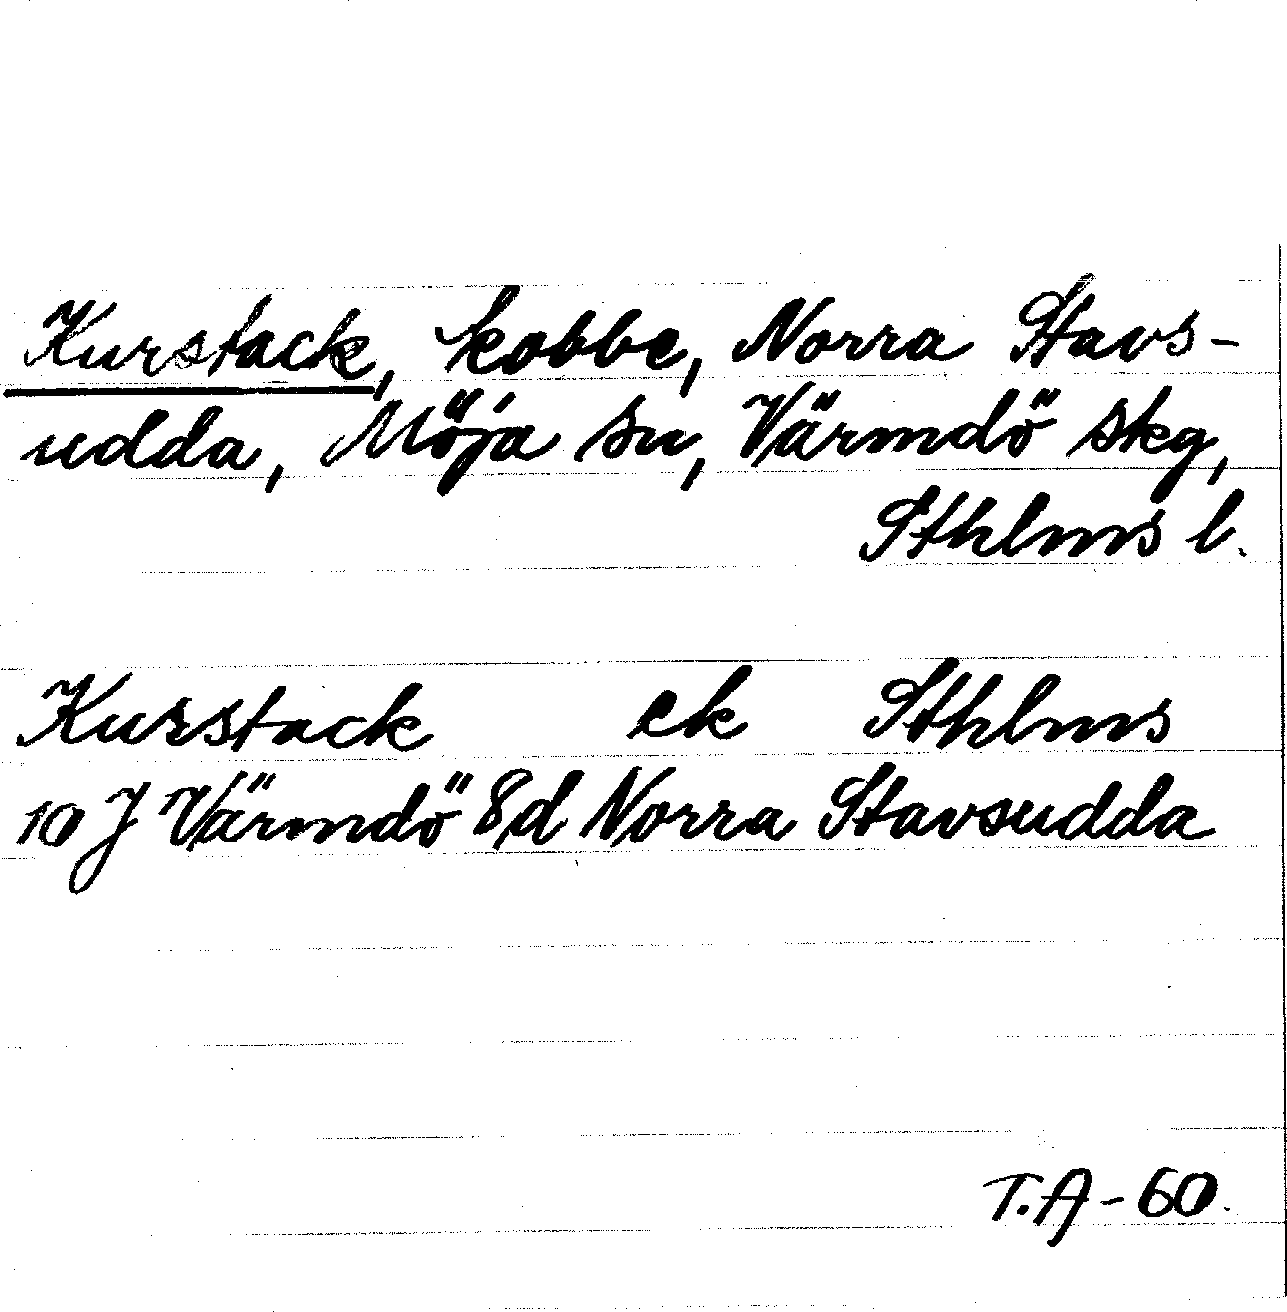 Kurstack, kobbe, Norra Stavs-
udda, Möja sn, Värmdö skg,
Sthlms l.
Kurstack ek Sthlms
10 J Värmdö 8d Norra Stavsudda
T.A-60.